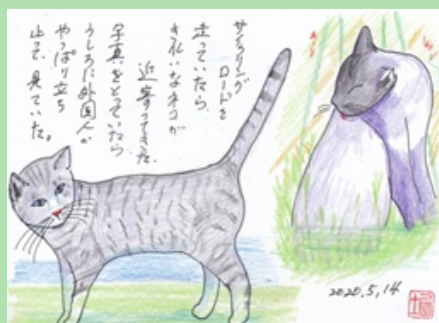 サイクリング
ロードを
走っていたら、
きれいなネコが
近寄ってきた。
写真をとっていたら
うしろに外国人が
やっぱり立ち
止って見ていた。
2020.5,14